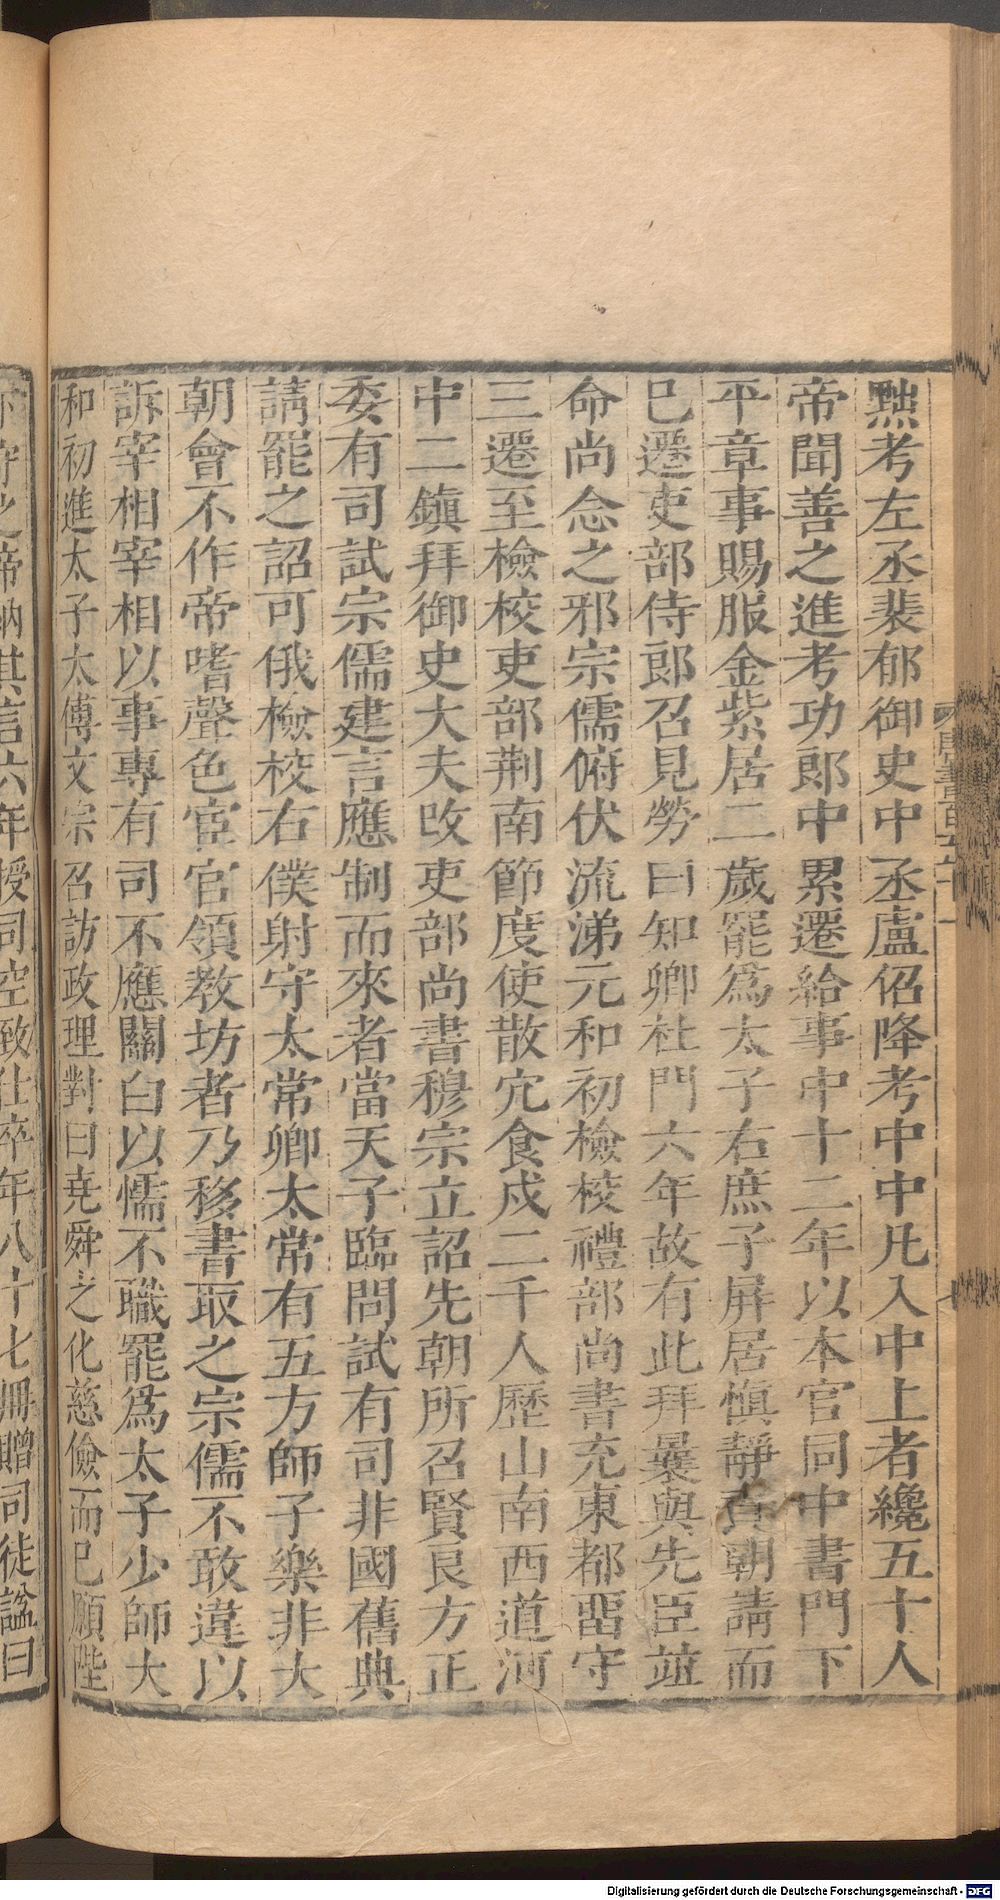 黜考左丞裴郁御史中丞盧佋降考中中凡入中上者纔五十人
帝聞善之進考功郎中累遷給事中十二年以本官同中書門下
平章事賜服金紫居二歲罷爲太子右庶子屏居愼靜奉朝請而
已遷吏部侍郎召見勞曰知卿杜門六年故有此拜曩與先臣竝
命尚念之邪宗儒俯伏流涕元和初檢校禮部尚書充東都畱守
三遷至檢校吏部荆南節度使散冗食戍二千人歷山南西道河
中二鎭拜御史大夫改吏部尚書穆宗立詔先朝所召賢良方正
委有司試宗儒建言應制而來者當天子臨問試有司非國舊典
請罷之詔可俄檢校右僕射守太常卿太常有五方師子樂非大
朝會不作帝嗜聲色宦官領教坊者乃移書取之宗儒不敢違以
訴宰相宰相以事專有司不應關白以懦不職罷爲太子少師大
和初進太子太傅文宗召訪政理對曰堯舜之化慈儉而已願陛
下守之帝納其言六年授司空致仕卒年八十七冊贈司徒諡曰
Digitalisierung gefördert durch die Deutsche Forschungsgemeinschaft - DFG